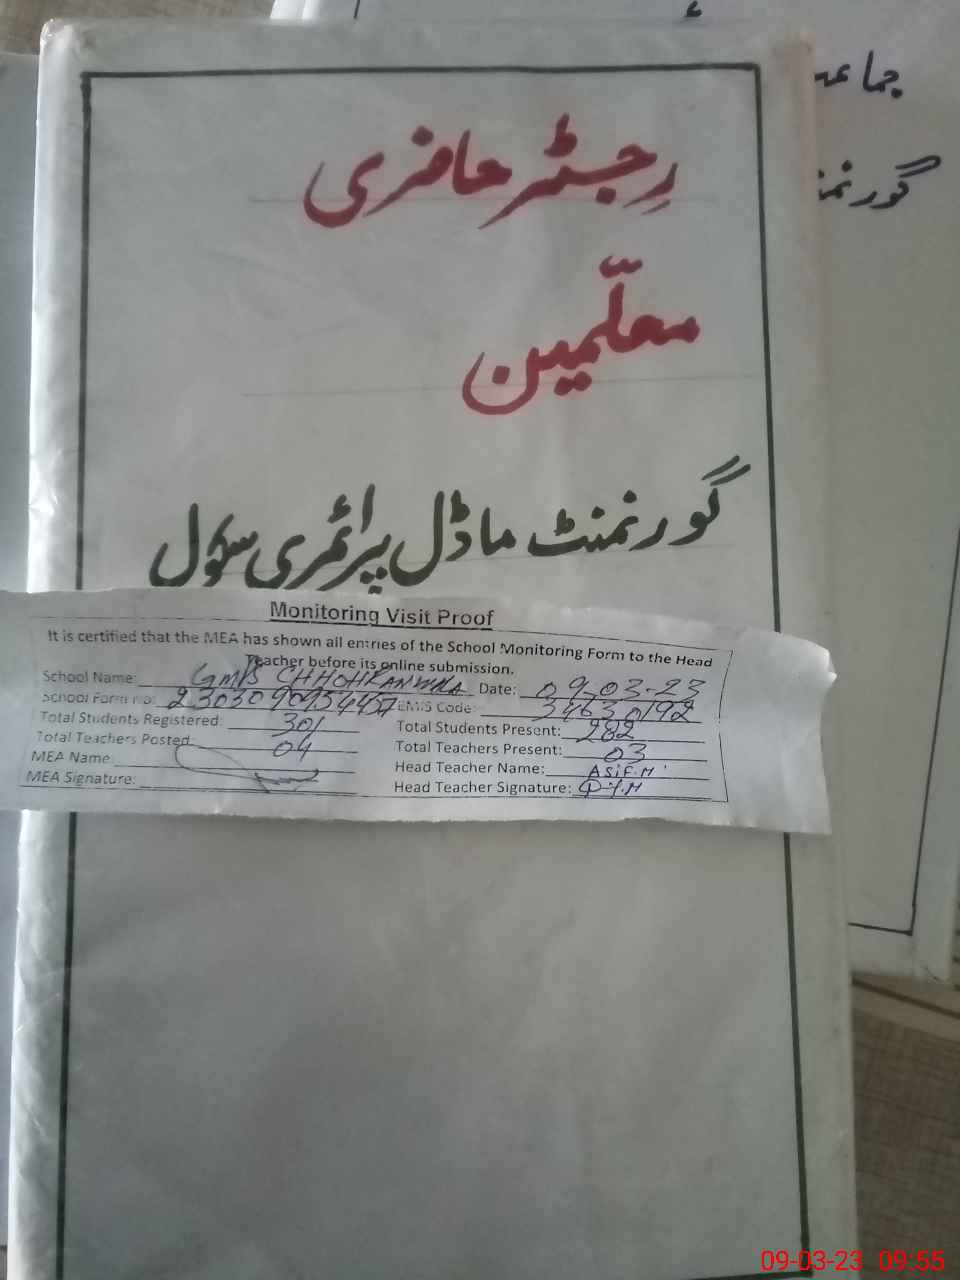 رجسٹر حاضری
معلّمین
گورنمنٹ ماڈل پرائمری سکول
Monitoring Visit Proof
It is certified that the MEA has shown all entries of the School Monitoring Form to the Head
Teacher before its online submission.
School Name: GMPS CHHOHRANWALA Date: 09-03-23
School Form No: EMIS Code: 34630192
Total Students Registered: 301 Total Students Present: 282
Total Teachers Posted: 04 Total Teachers Present: 03
MEA Name: Head Teacher Name: ASIF.M
MEA Signature: Head Teacher Signature:
جماعت
09-03-23 09:55